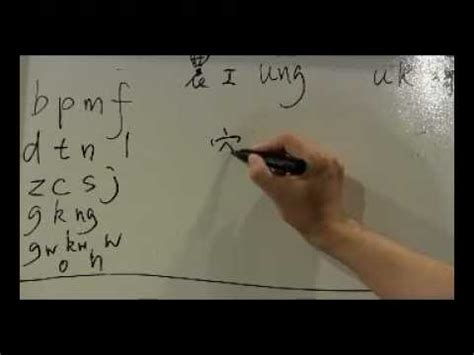 I ung uk
b p m f
穴
d t n l
z c s j
g k ng
gw kw w
o h